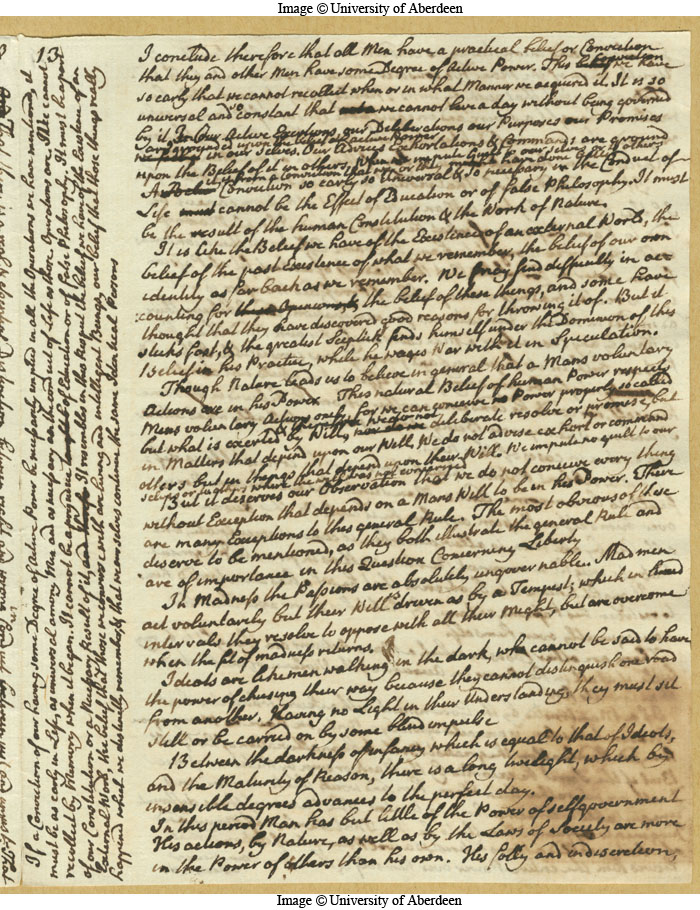 Image © University of Aberdeen
13
I conclude therefore that all Men have a practical belief or Conviction
that they and other Men have some Degree of Active Power. This we have
so early that we cannot recollect when or in what Manner we acquired it. It is so
universal and so constant that we cannot live a day without being governed
by it. In our Active Exertions, our Deliberations our Purposes our Promises
are grounded upon the belief of active power
in our selves. Our Advices Exhortations & Commands are ground
upon the Belief of it in others. When we impute Guilt to ourselves or to others
it is from a conviction that we or they have done
A Conviction so early so Universal & so necessary in the Conduct of
Life cannot be the Effect of Education or of false Philosophy. It must
be the result of the human Constitution & the Work of Nature.
It is like the Belief we have of the Existence of an external World, the
belief of the past Existence of what we remember, the belief of our own
identity as far back as we remember. We may find difficulty in ac
counting for the belief of these things, and some have
thought that they have discovered good reasons for throwing it of. But it
sticks fast, & the greatest Sceptick finds himself under the Dominion of this
Belief in his Practice, while he wages War with it in Speculation.
Though Nature leads us to believe in general that a Mans voluntary
Actions are in his Power. This natural Belief of human Power respects
Mens voluntary Actions only, For we can conceive no Power properly so called
but what is exerted by Will, & therefore we do not deliberate resolve or promise, but
in Matters that depend upon our Will. We do not advise exhort or command
others but in things that depend upon their Will. We impute no guilt to our
selves or to others where the will was not concerned
But it deserves our Observation that we do not conceive every thing
without Exception that depends on a Mans Will to be in his Power. There
are many Exceptions to this general Rule. The most obvious of these
deserve to be mentioned, as they both illustrate the general Rule and
are of importance in this Question Concerning Liberty
In Madness the Passions are absolutely ungovernable. Mad men
act voluntarly but their Will is driven as by a Tempest; which in lucid
intervals they resolve to oppose with all their Might, but are overcome
when the fit of madness returns.
Ideots are like men walking in the dark, who cannot be said to have
the power of chusing their way because they cannot distinguish one road
from another. Having no Light in their Understanding, they must sit
still or be carried on by some blind impulse
Between the darkness of infancy which is equal to that of Ideots,
and the Maturity of Reason, there is a long twilight, which by
insensible degrees advances to the perfect day.
In this period Man has but little of the Power of self government
His actions, by Nature, as well as by the Laws of Society are more
in the Power of others than his own. His folly and indiscretion,
If a Conviction of our having some Degree of Active Power be necessarily implied in all the Operations we have mentioned, it
must be as early in Life, as universal among Men and as necessary in the conduct of Life as those Operations are. We cannot
recollect by Memory when it began. It cannot be a prejudice of Education or of false Philosophy. It must be a part
of our Constitution or a Necessary Result of it. It resembles in this Respect the belief we have of the Existence of an
External World, the belief that those we converse with are living and intelligent Beings, our belief that those things really
happened which we distinctly remember, & that we ourselves continue the same Identical Persons
Image © University of Aberdeen